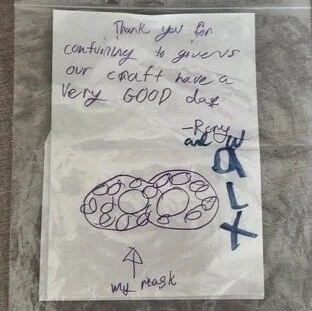 Thank you for
contuning to give us
our craft have a
very GOOD day
-Rory
and
my mask